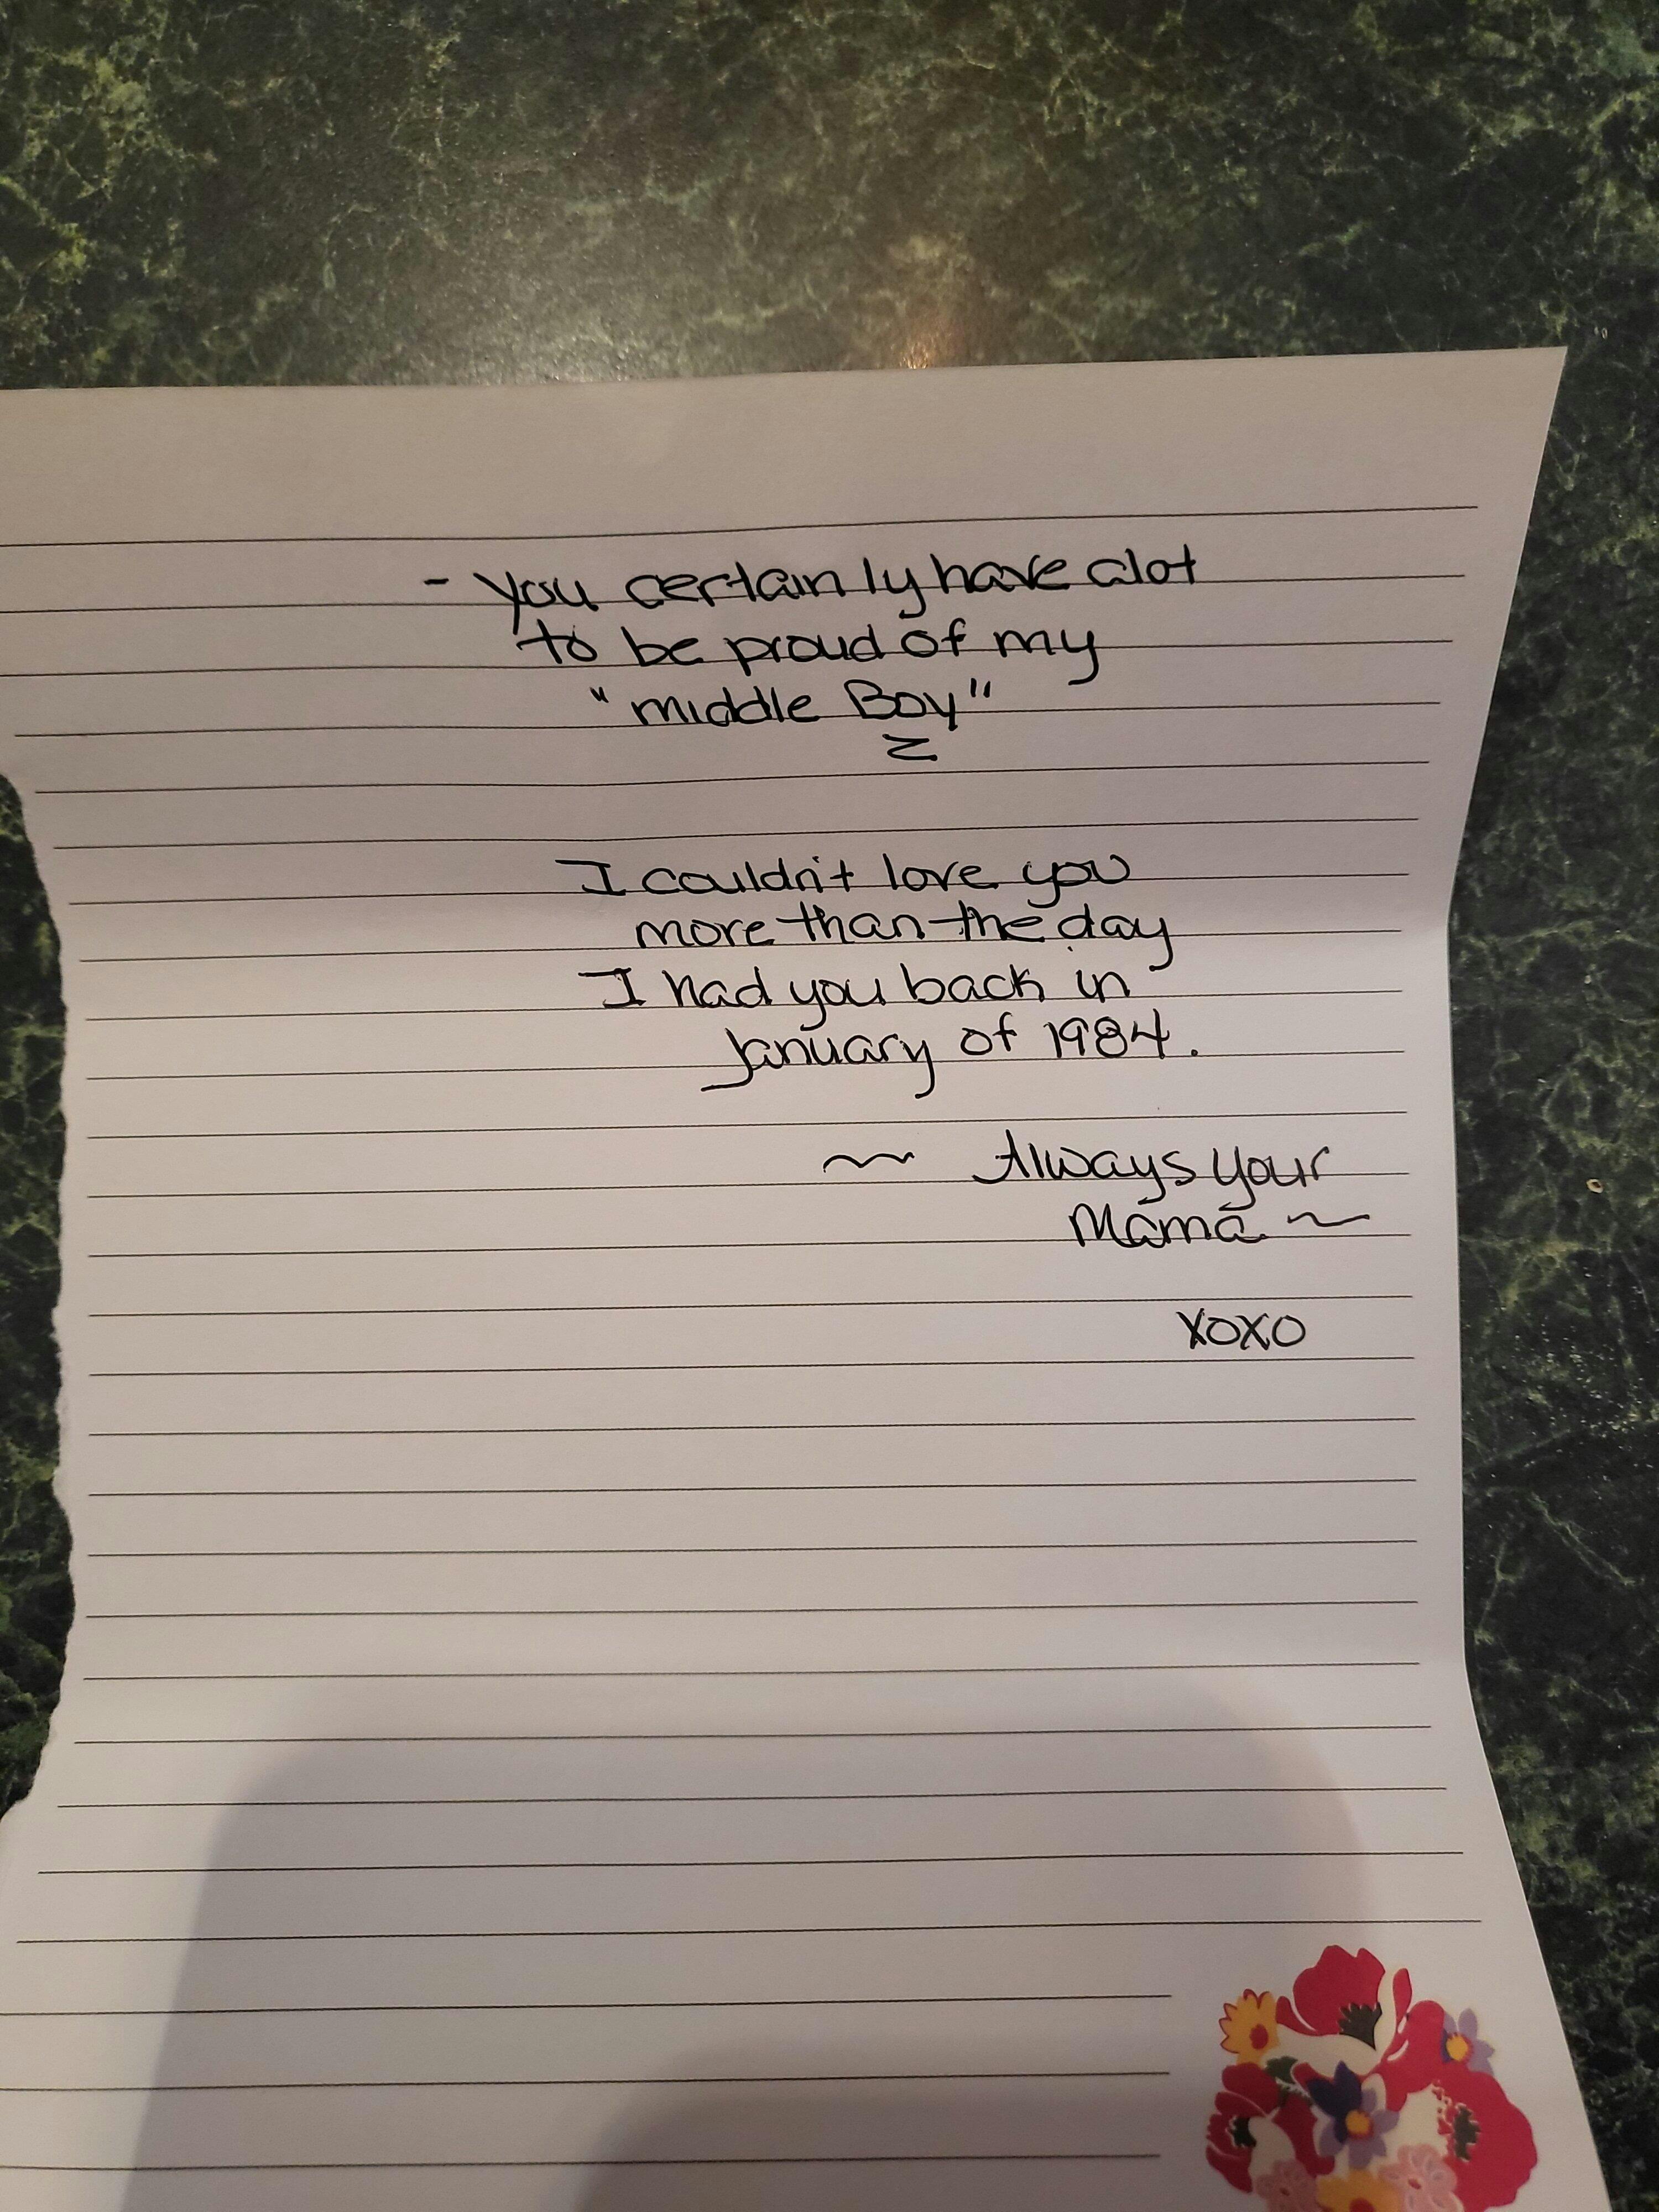 - you certainly have alot
to be proud of my
"middle Boy"
I couldn't love you
more than the day
I had you back in
January of 1984.
~ Always your
Mama ~
XOXO